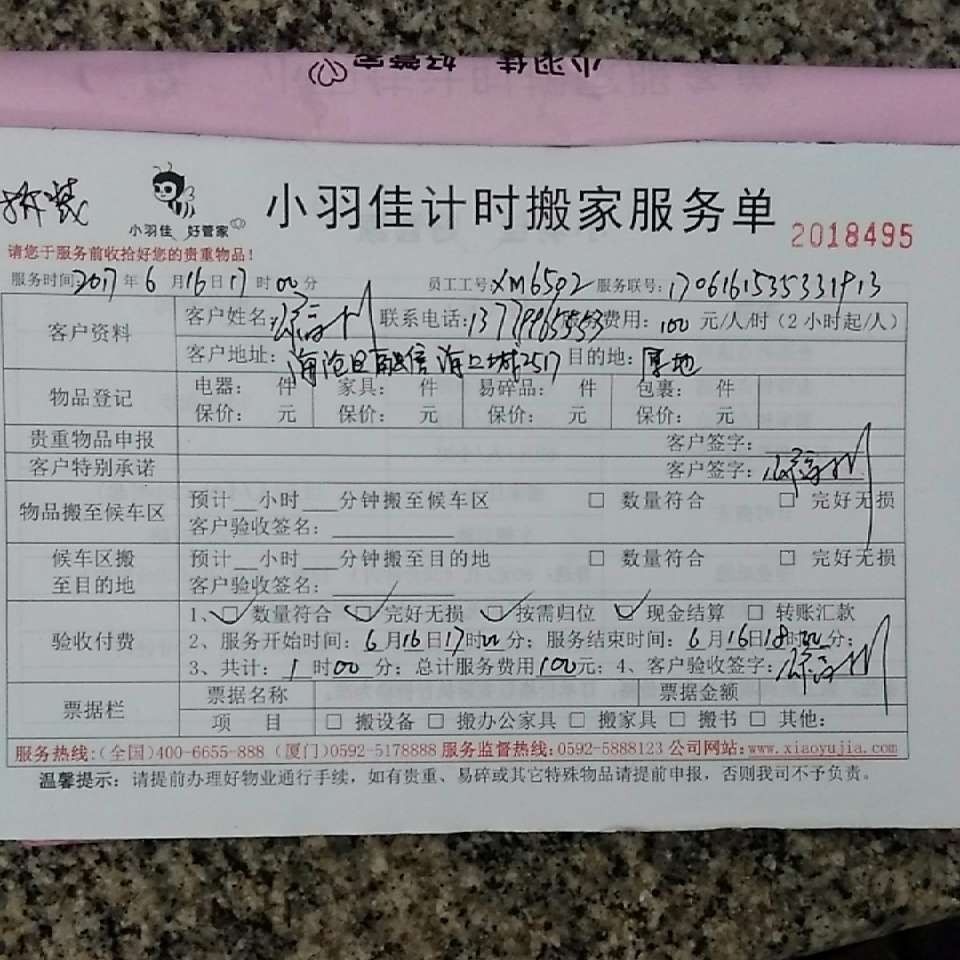 小羽佳 好管家
拆装
小羽佳 好管家
小羽佳计时搬家服务单
2018495
请您于服务前收拾好您的贵重物品！
服务时间：2017年6月16日17时00分 员工工号：XM6502 服务联号：1706161535331913
客户资料
客户姓名： 联系电话： 费用：100元/人/时（2小时起/人）
客户地址：海沧区融信海上城2517 目的地：原地
物品登记
电器： 件 家具： 件 易碎品： 件 包裹： 件
保价： 元 保价： 元 保价： 元 保价： 元
贵重物品申报 客户签字：
客户特别承诺 客户签字：
物品搬至候车区
预计__小时___分钟搬至候车区 □ 数量符合 □ 完好无损
客户验收签名：
候车区搬至目的地
预计__小时___分钟搬至目的地 □ 数量符合 □ 完好无损
客户验收签名：
验收付费
1、☑数量符合 ☑完好无损 ☑按需归位 ☑现金结算 □ 转账汇款
2、服务开始时间：6月16日17时00分；服务结束时间：6月16日18时00分；
3、共计：1时00分；总计服务费用100元；4、客户验收签字：
票据栏
票据名称 票据金额
项 目 □ 搬设备 □ 搬办公家具 □ 搬家具 □ 搬书 □ 其他：
服务热线：(全国)400-6655-888 (厦门)0592-5178888 服务监督热线：0592-5888123 公司网站：www.xiaoyujia.com
温馨提示：请提前办理好物业通行手续，如有贵重、易碎或其它特殊物品请提前申报，否则我司不予负责。